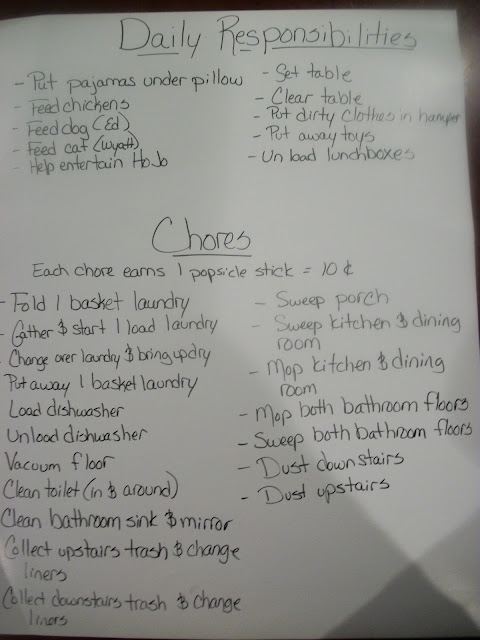 Daily Responsibilities
- Put pajamas under pillow
- Feed chickens
- Feed dog (Ed)
- Feed cat (Wyatt)
- Help entertain HoJo
- Set table
- Clear table
- Put dirty clothes in hamper
- Put away toys
- Unload lunchboxes
Chores
Each chore earns 1 popsicle stick = 10 ¢
- Fold 1 basket laundry
- Gather & start 1 load laundry
- Change over laundry & bring up dry
Put away 1 basket laundry
Load dishwasher
Unload dishwasher
Vacuum floor
Clean toilet (in & around)
Clean bathroom sink & mirror
Collect upstairs trash & change
liners
Collect downstairs trash & change
liners
- Sweep porch
- Sweep kitchen & dining
room
- Mop kitchen & dining
room
- Mop both bathroom floors
- Sweep both bathroom floors
- Dust downstairs
- Dust upstairs